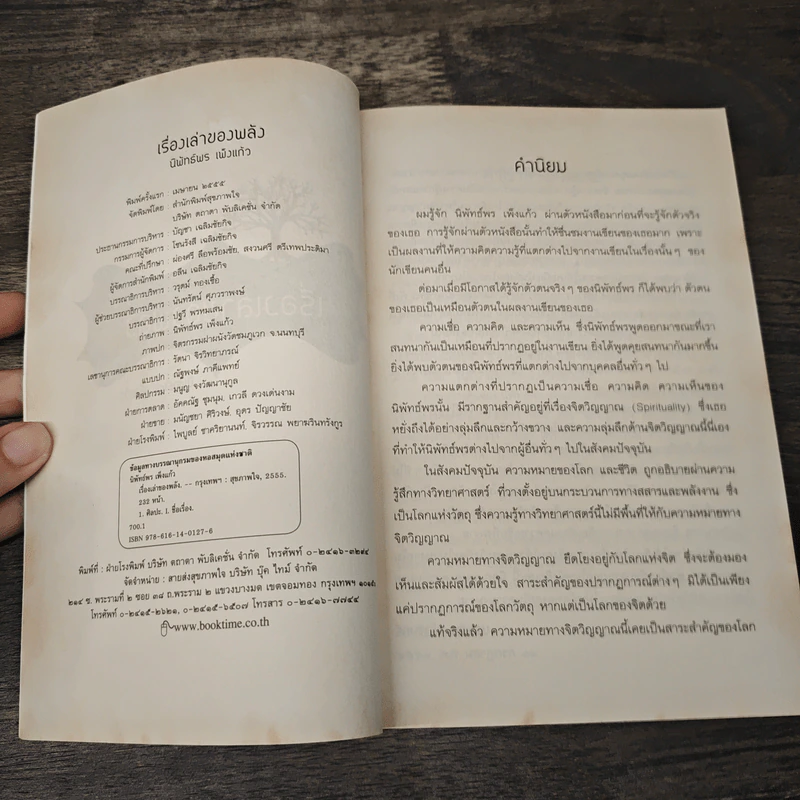 เรื่องเล่าของพลัง
นิพัทธ์พร เพ็งแก้ว
พิมพ์ครั้งแรก : เมษายน ๒๕๕๕
จัดพิมพ์โดย : สำนักพิมพ์สุขภาพใจ
บริษัท ตถาตา พับลิเคชั่น จำกัด
ประธานกรรมการบริหาร : บัญชา เฉลิมชัยกิจ
กรรมการผู้จัดการ : โชนรังสี เฉลิมชัยกิจ
คณะที่ปรึกษา : ผ่องศรี ลือพร้อมชัย, สงวนศรี ตรีเทพประติมา
ผู้จัดการสำนักพิมพ์ : อลีน เฉลิมชัยกิจ
บรรณาธิการบริหาร : วรุตม์ ทองเชื้อ
ผู้ช่วยบรรณาธิการบริหาร : นันทรัตน์ ศุภวราพงษ์
บรรณาธิการ : ปฐวี พรหมเสน
ถ่ายภาพ : นิพัทธ์พร เพ็งแก้ว
ภาพปก : จิตรกรรมฝาผนังวัดชมภูเวก จ.นนทบุรี
เลขานุการคณะบรรณาธิการ : รัตนา จีรวิทยาภรณ์
แบบปก : ณัฐพงษ์ ภาคีแพทย์
ศิลปกรรม : มนูญ จงวัฒนานุกูล
ฝ่ายการตลาด : อัคคณัฐ ชุมนุม, เกวลี ดวงเด่นงาม
ฝ่ายขาย : มนัญชยา ศิริวงษ์, อุดร ปัญญาชัย
ฝ่ายโรงพิมพ์ : ไพบูลย์ ชาคริยานนท์, จิรวรรณ พยาฆรินทรังกูร
ข้อมูลทางบรรณานุกรมของหอสมุดแห่งชาติ
นิพัทธ์พร เพ็งแก้ว
เรื่องเล่าของพลัง. -- กรุงเทพฯ : สุขภาพใจ, 2555.
232 หน้า.
1. ศิลปะ. I. ชื่อเรื่อง.
700.1
ISBN 978-616-14-0127-6
พิมพ์ที่ : ฝ่ายโรงพิมพ์ บริษัท ตถาตา พับลิเคชั่น จำกัด โทรศัพท์ ๐-๒๔๑๖-๓๒๙๔
จัดจำหน่าย : สายส่งสุขภาพใจ บริษัท บุ๊ค ไทม์ จำกัด
๒๑๔ ซ. พระรามที่ ๒ ซอย ๓๘ ถ.พระราม ๒ แขวงบางมด เขตจอมทอง กรุงเทพฯ
โทรศัพท์ ๐-๒๔๑๕-๒๖๒๑, ๐-๒๔๑๕-๖๕๐๗ โทรสาร ๐-๒๔๑๖-๗๗๔๔
www.booktime.co.th
คำนิยม
ผมรู้จัก นิพัทธ์พร เพ็งแก้ว ผ่านตัวหนังสือมาก่อนที่จะรู้จักตัวจริง
ของเธอ การรู้จักผ่านตัวหนังสือนั้นทำให้ชื่นชมงานเขียนของเธอมาก เพราะ
เป็นผลงานที่ให้ความคิดความรู้ที่แตกต่างไปจากงานเขียนในเรื่องนั้นๆ ของ
นักเขียนคนอื่น
ต่อมาเมื่อมีโอกาสได้รู้จักตัวตนจริงๆ ของนิพัทธ์พร ก็ได้พบว่า ตัวตน
ของเธอเป็นเหมือนตัวตนในผลงานเขียนของเธอ
ความเชื่อ ความคิด และความเห็น ซึ่งนิพัทธ์พรพูดออกมาขณะที่เรา
สนทนากันเป็นเหมือนที่ปรากฏอยู่ในงานเขียน ยิ่งได้พูดคุยสนทนากันมากขึ้น
ยิ่งได้พบตัวตนของนิพัทธ์พรที่แตกต่างไปจากบุคคลอื่นทั่วๆ ไป
ความแตกต่างที่ปรากฏเป็นความเชื่อ ความคิด ความเห็นของ
นิพัทธ์พรนั้น มีรากฐานสำคัญอยู่ที่เรื่องจิตวิญญาณ (Spirituality) ซึ่งเธอ
หยั่งถึงได้อย่างลุ่มลึกและกว้างขวาง และความลุ่มลึกด้านจิตวิญญาณนี้นี่เอง
ที่ทำให้นิพัทธ์พรต่างไปจากผู้อื่นทั่วๆ ไปในสังคมปัจจุบัน
ในสังคมปัจจุบัน ความหมายของโลก และชีวิต ถูกอธิบายผ่านความ
รู้สึกทางวิทยาศาสตร์ ที่วางตั้งอยู่บนกระบวนการทางสสารและพลังงาน ซึ่ง
เป็นโลกแห่งวัตถุ ซึ่งความรู้ทางวิทยาศาสตร์นี้ไม่มีพื้นที่ให้กับความหมายทาง
จิตวิญญาณ
ความหมายทางจิตวิญญาณ ยึดโยงอยู่กับโลกแห่งจิต ซึ่งจะต้องมอง
เห็นและสัมผัสได้ด้วยใจ สาระสำคัญของปรากฏการณ์ต่างๆ มิได้เป็นเพียง
แค่ปรากฏการณ์ของโลกวัตถุ หากแต่เป็นโลกของจิตด้วย
แท้จริงแล้ว ความหมายทางจิตวิญญาณนี้เคยเป็นสาระสำคัญของโลก